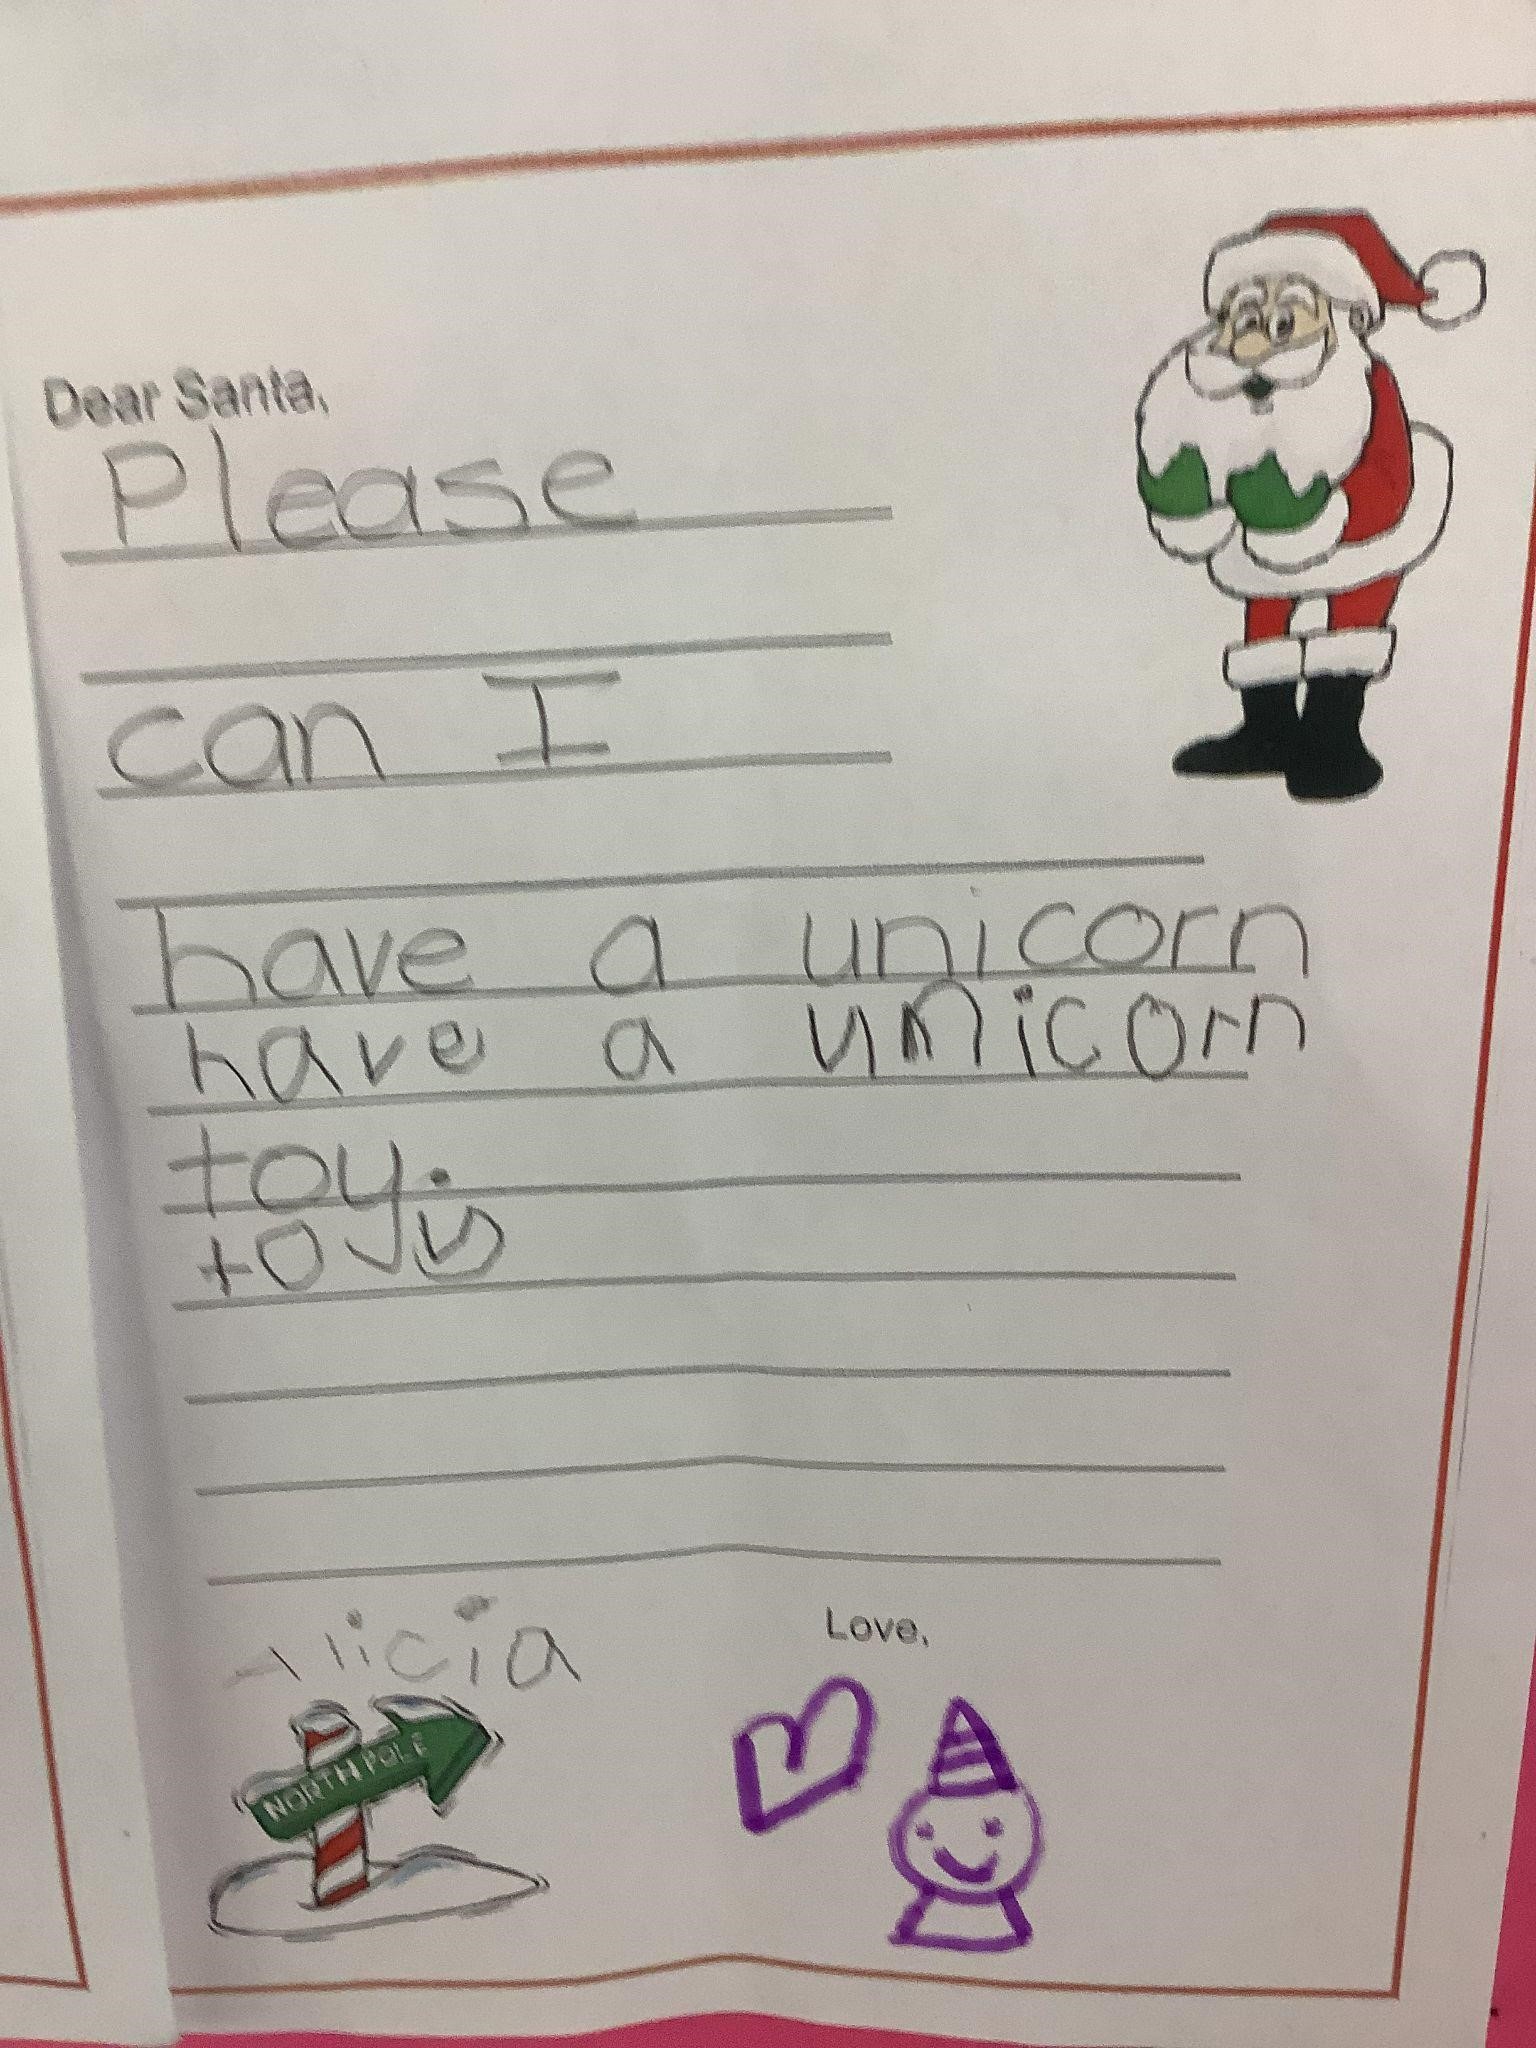 Dear Santa,
Please
can I
have a unicorn
have a unicorn
toy.
toy
Alicia
Love,
NORTH POLE